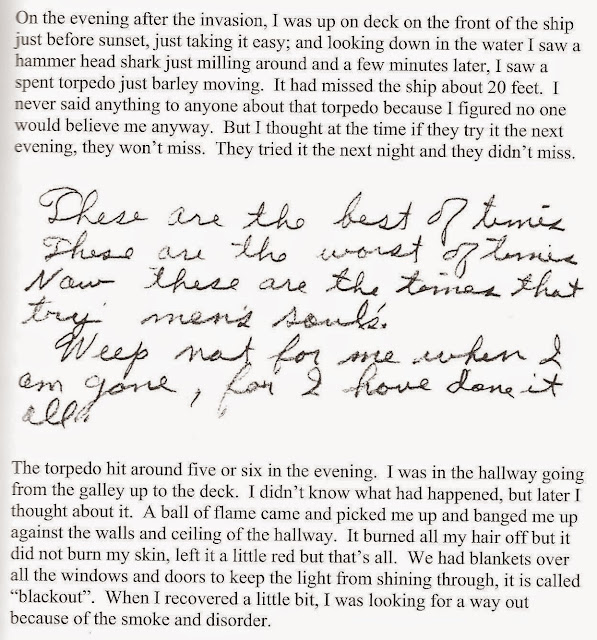 On the evening after the invasion, I was up on deck on the front of the ship
just before sunset, just taking it easy; and looking down in the water I saw a
hammer head shark just milling around and a few minutes later, I saw a
spent torpedo just barley moving.  It had missed the ship about 20 feet.  I
never said anything to anyone about that torpedo because I figured no one
would believe me anyway.  But I thought at the time if they try it the next
evening, they won't miss.  They tried it the next night and they didn't miss.
These are the best of times
These are the worst of times
Now these are the times that
try men's souls.
Weep not for me when I
am gone, for I have done it
all.
The torpedo hit around five or six in the evening.  I was in the hallway going
from the galley up to the deck.  I didn't know what had happened, but later I
thought about it.  A ball of flame came and picked me up and banged me up
against the walls and ceiling of the hallway.  It burned all my hair off but it
did not burn my skin, left it a little red but that's all.  We had blankets over
all the windows and doors to keep the light from shining through, it is called
"blackout".  When I recovered a little bit, I was looking for a way out
because of the smoke and disorder.